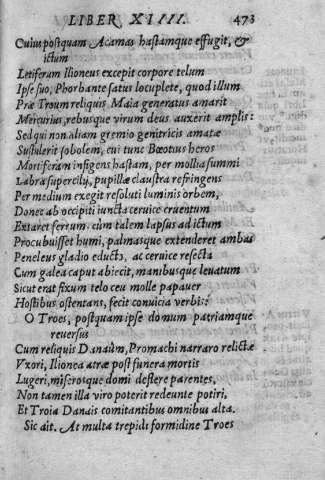 LIBER XIIII. 473
Cuius postquam Acamas hastamque effugit, &
ictum
Letiferam Ilioneus excepit corpore telum
Ipse suo, Phorbante satus locuplete, quod illum
Præ Troum reliquis Maia generatus amarit
Mercurius, rebusque virum deus auxerit amplis:
Sed qui non aliam gremio genitricis amatæ
Sustulerit sobolem, cui tunc Bœotius heros
Mortiferam infigens hastam, per mollia summi
Labra supercilij, pupillæ claustra refringens
Per medium exegit resoluti luminis orbem,
Donec ab occipiti iuncta ceruice cruentum
Extaret ferrum. cùm talem lapsus ad ictum
Procubuisset humi, palmasque extenderet ambas
Peneleus gladio educto, ac ceruice resecta
Cum galea caput abiecit, manibusque leuatum
Sicut erat fixum telo ceu molle papauer
Hostibus ostentans, fecit conuicia verbis:
O Troes, postquam ipse domum patriamque
reuersus
Cum reliquis Danaûm, Promachi narraro relictæ
Vxori, Ilionea atræ post funera mortis
Lugeri, miserosque domi deflere parentes,
Non tamen illa viro poterit redeunte potiri,
Et Troia Danais comitantibus omnibus alta.
Sic ait. At multa trepidi formidine Troes